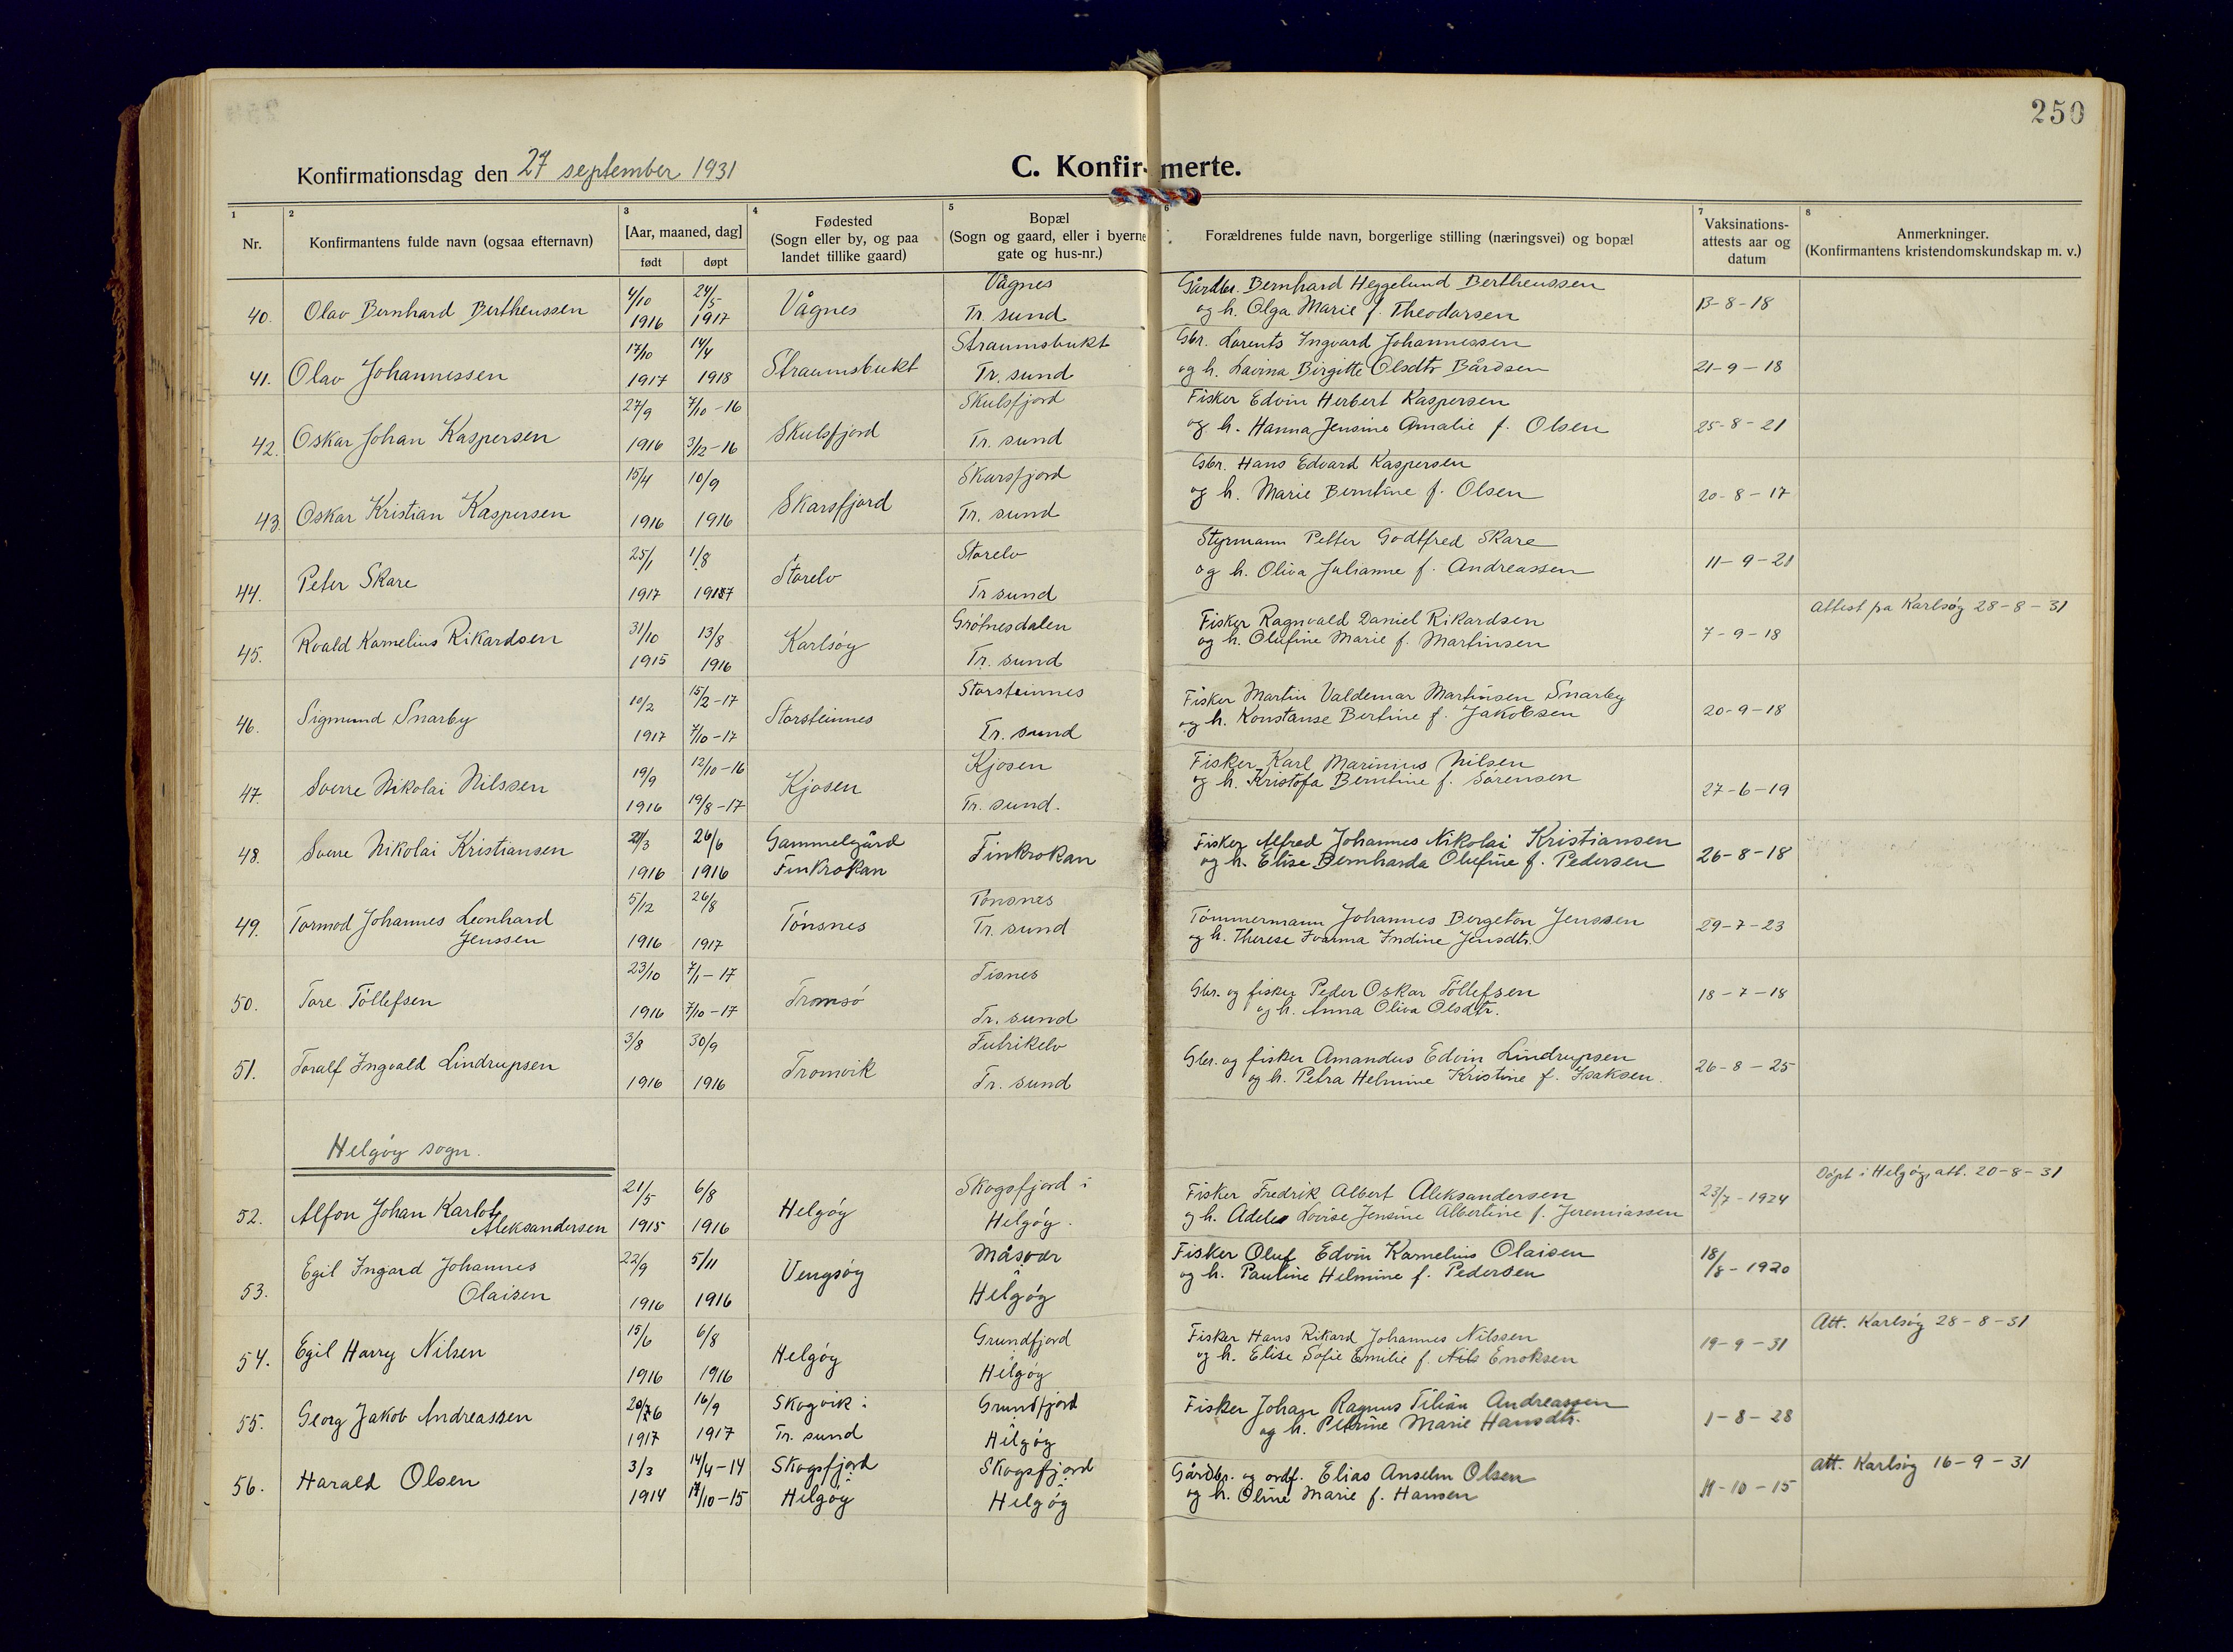 250
Konfirmationsdag den 27 september 1931
C. Konfirmerte.
1 2 3 4 5 6 7 8
Nr.
Konfirmantens fulde navn (ogsaa efternavn)
[Aar, maaned, dag]
født døpt
Fødested
(Sogn eller by, og paa
landet tillike gaard)
Bopæl
(Sogn og gaard, eller i byerne
gate og hus-nr.)
Forældrenes fulde navn, borgerlige stilling (næringsvei) og bopæl
Vaksinations-
attests aar og
datum
Anmerkninger.
(Konfirmantens kristendomskundskap m. v.)
4/10 24/5 Vågnes Gårdbr. Bernhard Heggelund Bertheussen
40. Olav Bernhard Bertheussen 1916 1917 Vågnes Tr. sund og h. Olga Marie f. Theodorsen 13-8-18
17/10 14/4 Straumsbukt Gbr. Lorents Ingvard Johannessen
41. Olav Johannessen 1917 1918 Straumsbukt Tr. sund og h. Lavina Birgitte Olsdtr Bårdsen 21-9-18
27/9 7/10-16 Skulsfjord Fisker Edvin Herbert Kaspersen
42. Oskar Johan Kaspersen 1916 3/12-16 Skulsfjord Tr. sund og h. Hanna Jensine Amalie f. Olsen 25-8-21
15/4 10/9 Skarsfjord Gbr. Hans Edvard Kaspersen
43. Oskar Kristian Kaspersen 1916 1916 Skarsfjord Tr. sund og h. Marie Berntine f. Olsen 20-8-17
25/1 1/8 Storelv Styrmann Petter Godtfred Skare
44. Peter Skare 1917 1917 Storelv Tr sund og h. Oliva Julianne f. Andreassen 11-9-21
31/10 13/8 Grøtnesdalen Fisker Ragnvald Daniel Rikardsen Attest fra Karlsøy 28-8-31
45. Roald Kornelius Rikardsen 1915 1916 Karlsøy Tr. sund og h. Olufine Marie f. Martinsen 7-9-18
10/2 15/2-17 Storsteinnes Fisker Martin Valdemar Martinsen Snarby
46. Sigmund Snarby 1917 7/10-17 Storsteinnes Tr. sund og h. Konstanse Bertine f. Jakobsen 20-9-18
19/9 12/10-16 Kjosen Fisker Karl Marinius Nilsen
47. Sverre Nikolai Nilssen 1916 19/8-17 Kjosen Tr. sund. og h. Kristofa Berntine f. Sørensen 27-6-19
21/3 26/6 Gammelgård Fisker Alfred Johannes Nikolai Kristiansen
48. Sverre Nikolai Kristiansen 1916 1916 Finkrokan Finkrokan og h. Elise Bernharda Olufine f. Pedersen 26-8-18
5/12 26/8 Tønsnes Tømmermann Johannes Bergeton Jenssen
49. Tormod Johannes Leonhard Jenssen 1916 1917 Tønsnes Tr. sund og h. Therese Ivanna Indine Jensdtr. 29-7-23
23/10 7/1-17 Tisnes Gbr. og fisker Peder Oskar Tøllefsen
50. Tore Tøllefsen 1916 7/10-17 Tromsø Tr. sund og h. Anna Oliva Olsdtr. 18-7-18
3/8 30/9 Futrikelv Gbr. og fisker Amandus Edvin Lindrupsen
51. Toralf Ingvald Lindrupsen 1916 1916 Tromvik Tr. sund og h. Petra Helmine Kristine f. Isaksen. 26-8-25
Helgøy sogn.
21/5 6/8 Skogsfjord i Fisker Fredrik Albert Aleksandersen 23/7-1924 Døpt i Helgøy, att. 20-8-31
52. Alfon Johan Karlot Aleksandersen 1915 1916 Helgøy Helgøy. og h. Adele Lovise Jensine Albertine f. Jeremiassen
22/9 5/11 Måsvær i Fisker Oluf Edvin Kornelius Olaisen
53. Egil Ingard Johannes Olaisen 1916 1916 Vengsøy Helgøy og h. Pauline Helmine f. Pedersen 18/8-1920
15/6 6/8 Grundfjord i Fisker Hans Rikard Johannes Nilssen Att. Karlsøy 28-8-31
54. Egil Harry Nilsen 1916 1916 Helgøy Helgøy og h. Elise Sofie Emilie f. Nils Enoksen 19-9-31
20/6 16/9 Skogvik i Grundfjord Fisker Johan Ragnus Tilian Andreassen
55. Georg Jakob Andreassen 1917 1917 Tr. sund Helgøy og h. Petrine Marie Hansdtr. 1-8-28
3/3 14/4-14 Skogsfjord i Skogsfjord i Gårdbr. og ordf. Elias Anselm Olsen att. Karlsøy 16-9-31
56. Harald Olsen 1914 17/10-15 Helgøy Helgøy og h. Oline Marie f. Hansen 11-10-15